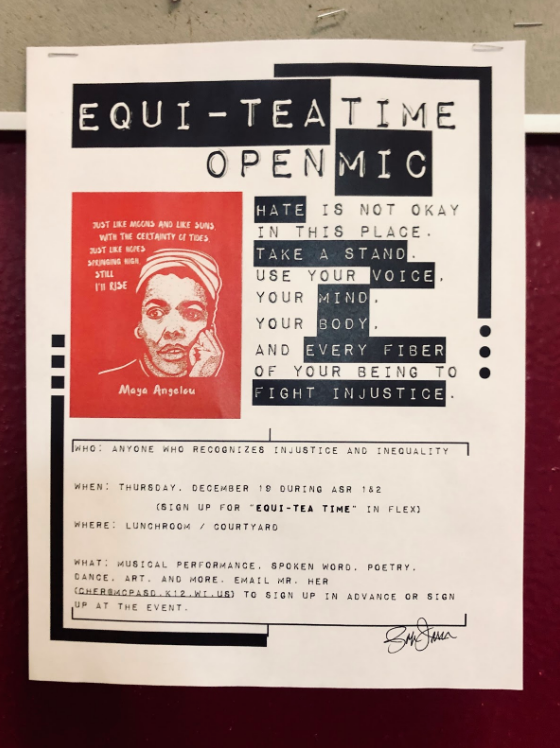 EQUI-TEA TIME
OPEN MIC
JUST LIKE MOONS AND LIKE SUNS
WITH THE CERTAINTY OF TIDES
JUST LIKE HOPES
SPRINGING HIGH
STILL
I'LL RISE
Maya Angelou
HATE IS NOT OKAY
IN THIS PLACE.
TAKE A STAND.
USE YOUR VOICE,
YOUR MIND,
YOUR BODY,
AND EVERY FIBER
OF YOUR BEING TO
FIGHT INJUSTICE.
WHO: ANYONE WHO RECOGNIZES INJUSTICE AND INEQUALITY
WHEN: THURSDAY, DECEMBER 19 DURING ASR 1&2
(SIGN UP FOR "EQUI-TEA TIME" IN FLEX)
WHERE: LUNCHROOM / COURTYARD
WHAT: MUSICAL PERFORMANCE, SPOKEN WORD, POETRY,
DANCE, ART, AND MORE. EMAIL MR. HER
(CHER@MCPASD.K12.WI.US) TO SIGN UP IN ADVANCE OR SIGN
UP AT THE EVENT.